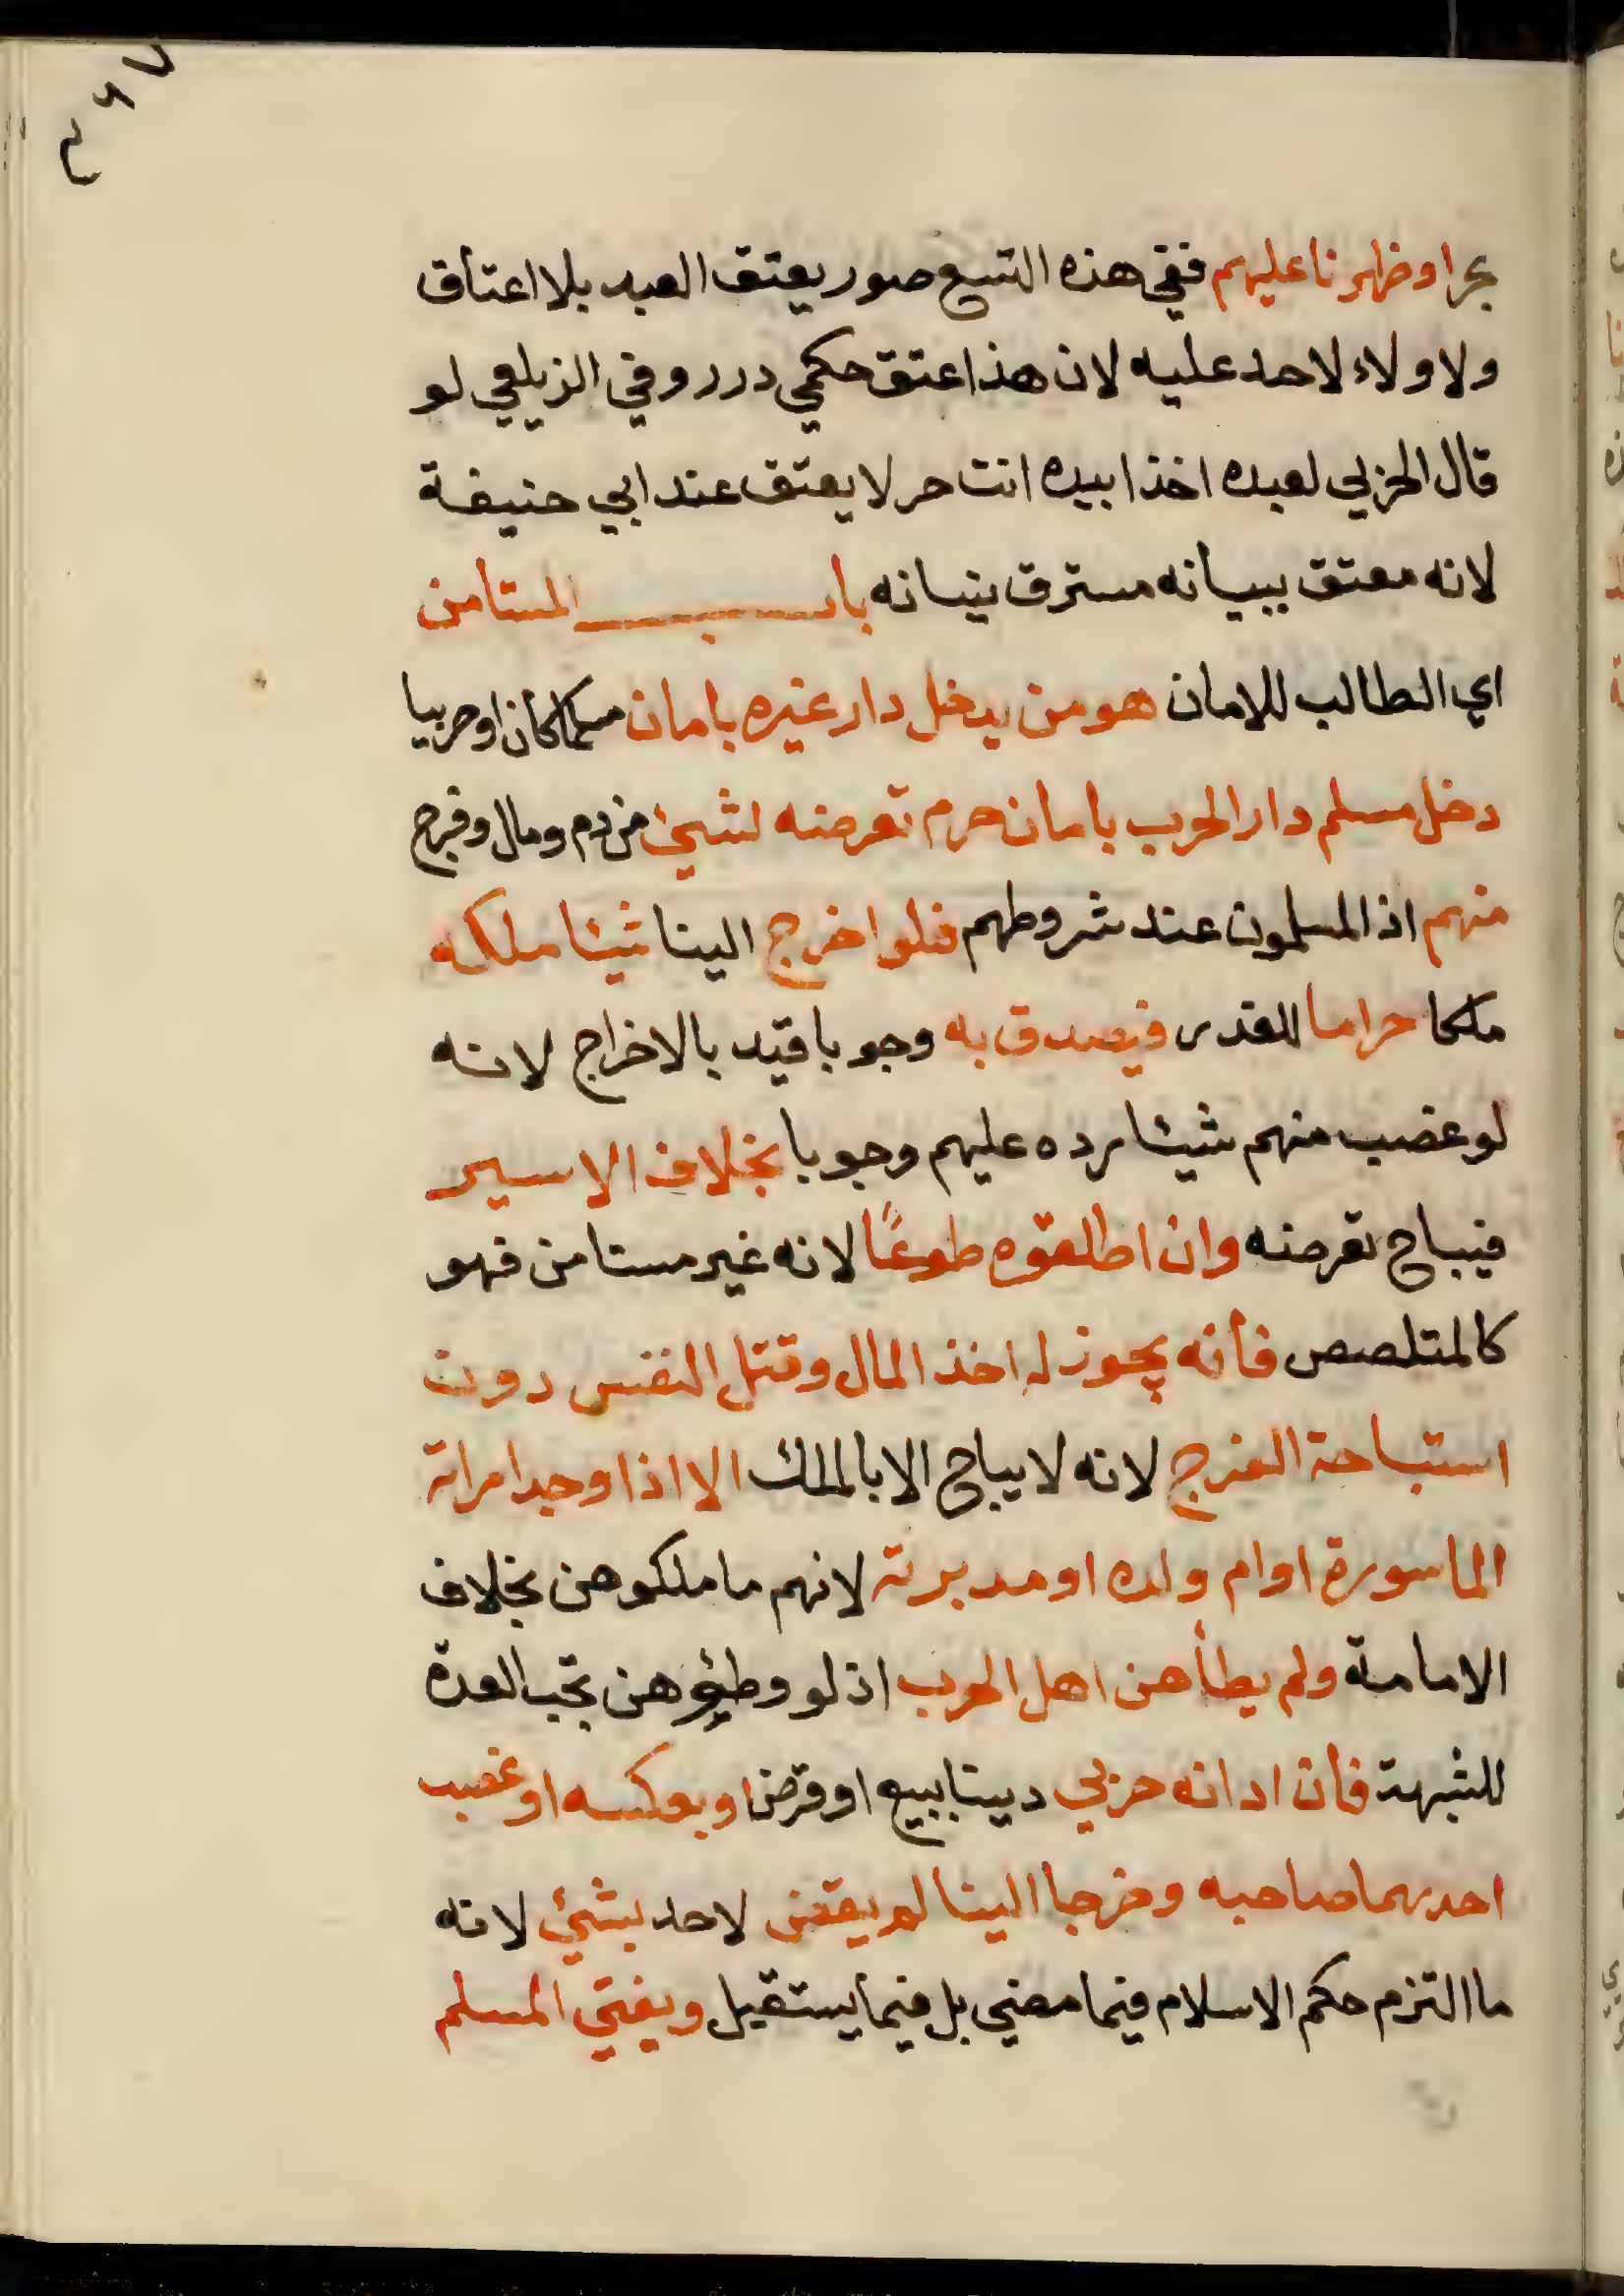 بحرا وظهرنا عليهم ففي هذه التسع صور يعتق العبد بلا اعتاق
ولا ولاء لاحد عليه لان هذا عتق حكمي درر وفي الزيلعي لو
قال الحربي لعبده اخذا بيده انت حر لا يعتق عند ابي حنيفة
لانه معتق ببيانه مسترق ببنانه باب المستامن
اي الطالب للامان هو من يدخل دار غيره بامان مسلما كان او حربيا
دخل مسلم دار الحرب بامان حرم تعرضه لشيئ من دم ومال وفرج
منهم اذ المسلمون عند شروطهم فلو اخرج الينا شيئا ملكه
ملكا حراما للغدر فيصدق به وجوبا قيد بالاخراج لانه
لو غصب منهم شيئا رده عليهم وجوبا بخلاف الاسير
فيباح تعرضه وان اطلقوه طوعًا لانه غير مستامن فهو
كالمتلصص فانه يجوز له اخذ المال وقتل النفس دون
استباحة الفرج لانه لا يباح الا بالملك الا اذا وجد امراته
الماسورة او ام ولده او مدبرته لانهم ما ملكوهن بخلاف
الامامة ولم يطأهن اهل الحرب اذ لو وطئوهن تجب العدة
للشبهة فان ادانه حربي دينا ببيع او قرض او بعكسه او غصب
احدهما صاحبه وخرجا الينا لم يقض لاحد بشيئ لانه
ما التزم حكم الاسلام فيما مضي بل فيما يستقبل ويفتي المسلم